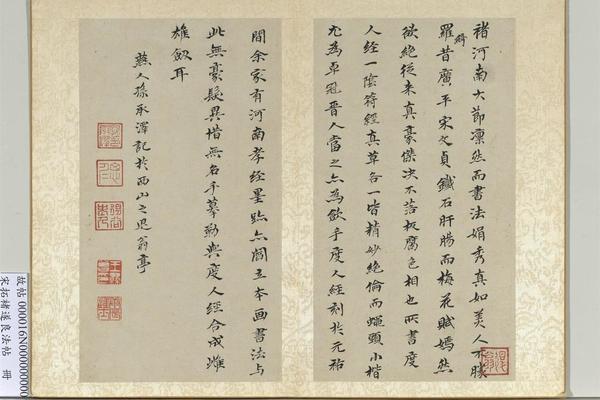 褚河南大節凛然而書法娟秀真如美人不勝
羅綺昔廣平宋文貞鐵石肝腸而梅花賦嫣然
欲絶從来真豪傑决不落板腐色相也所書度
人経一陰符經真草各一皆精妙絶倫而蠅頭小楷
尤為卓冠晋人當之亦為歛手度人經刻於元祐
間余家有河南孝經墨跡亦閻立本画書法与
此無豪髮異惜無名手摹勒與度人經合成雌
雄劔耳
燕人孫承澤記於西山之退翁亭
故帖000016N000000000
宋拓褚遂良法帖 冊